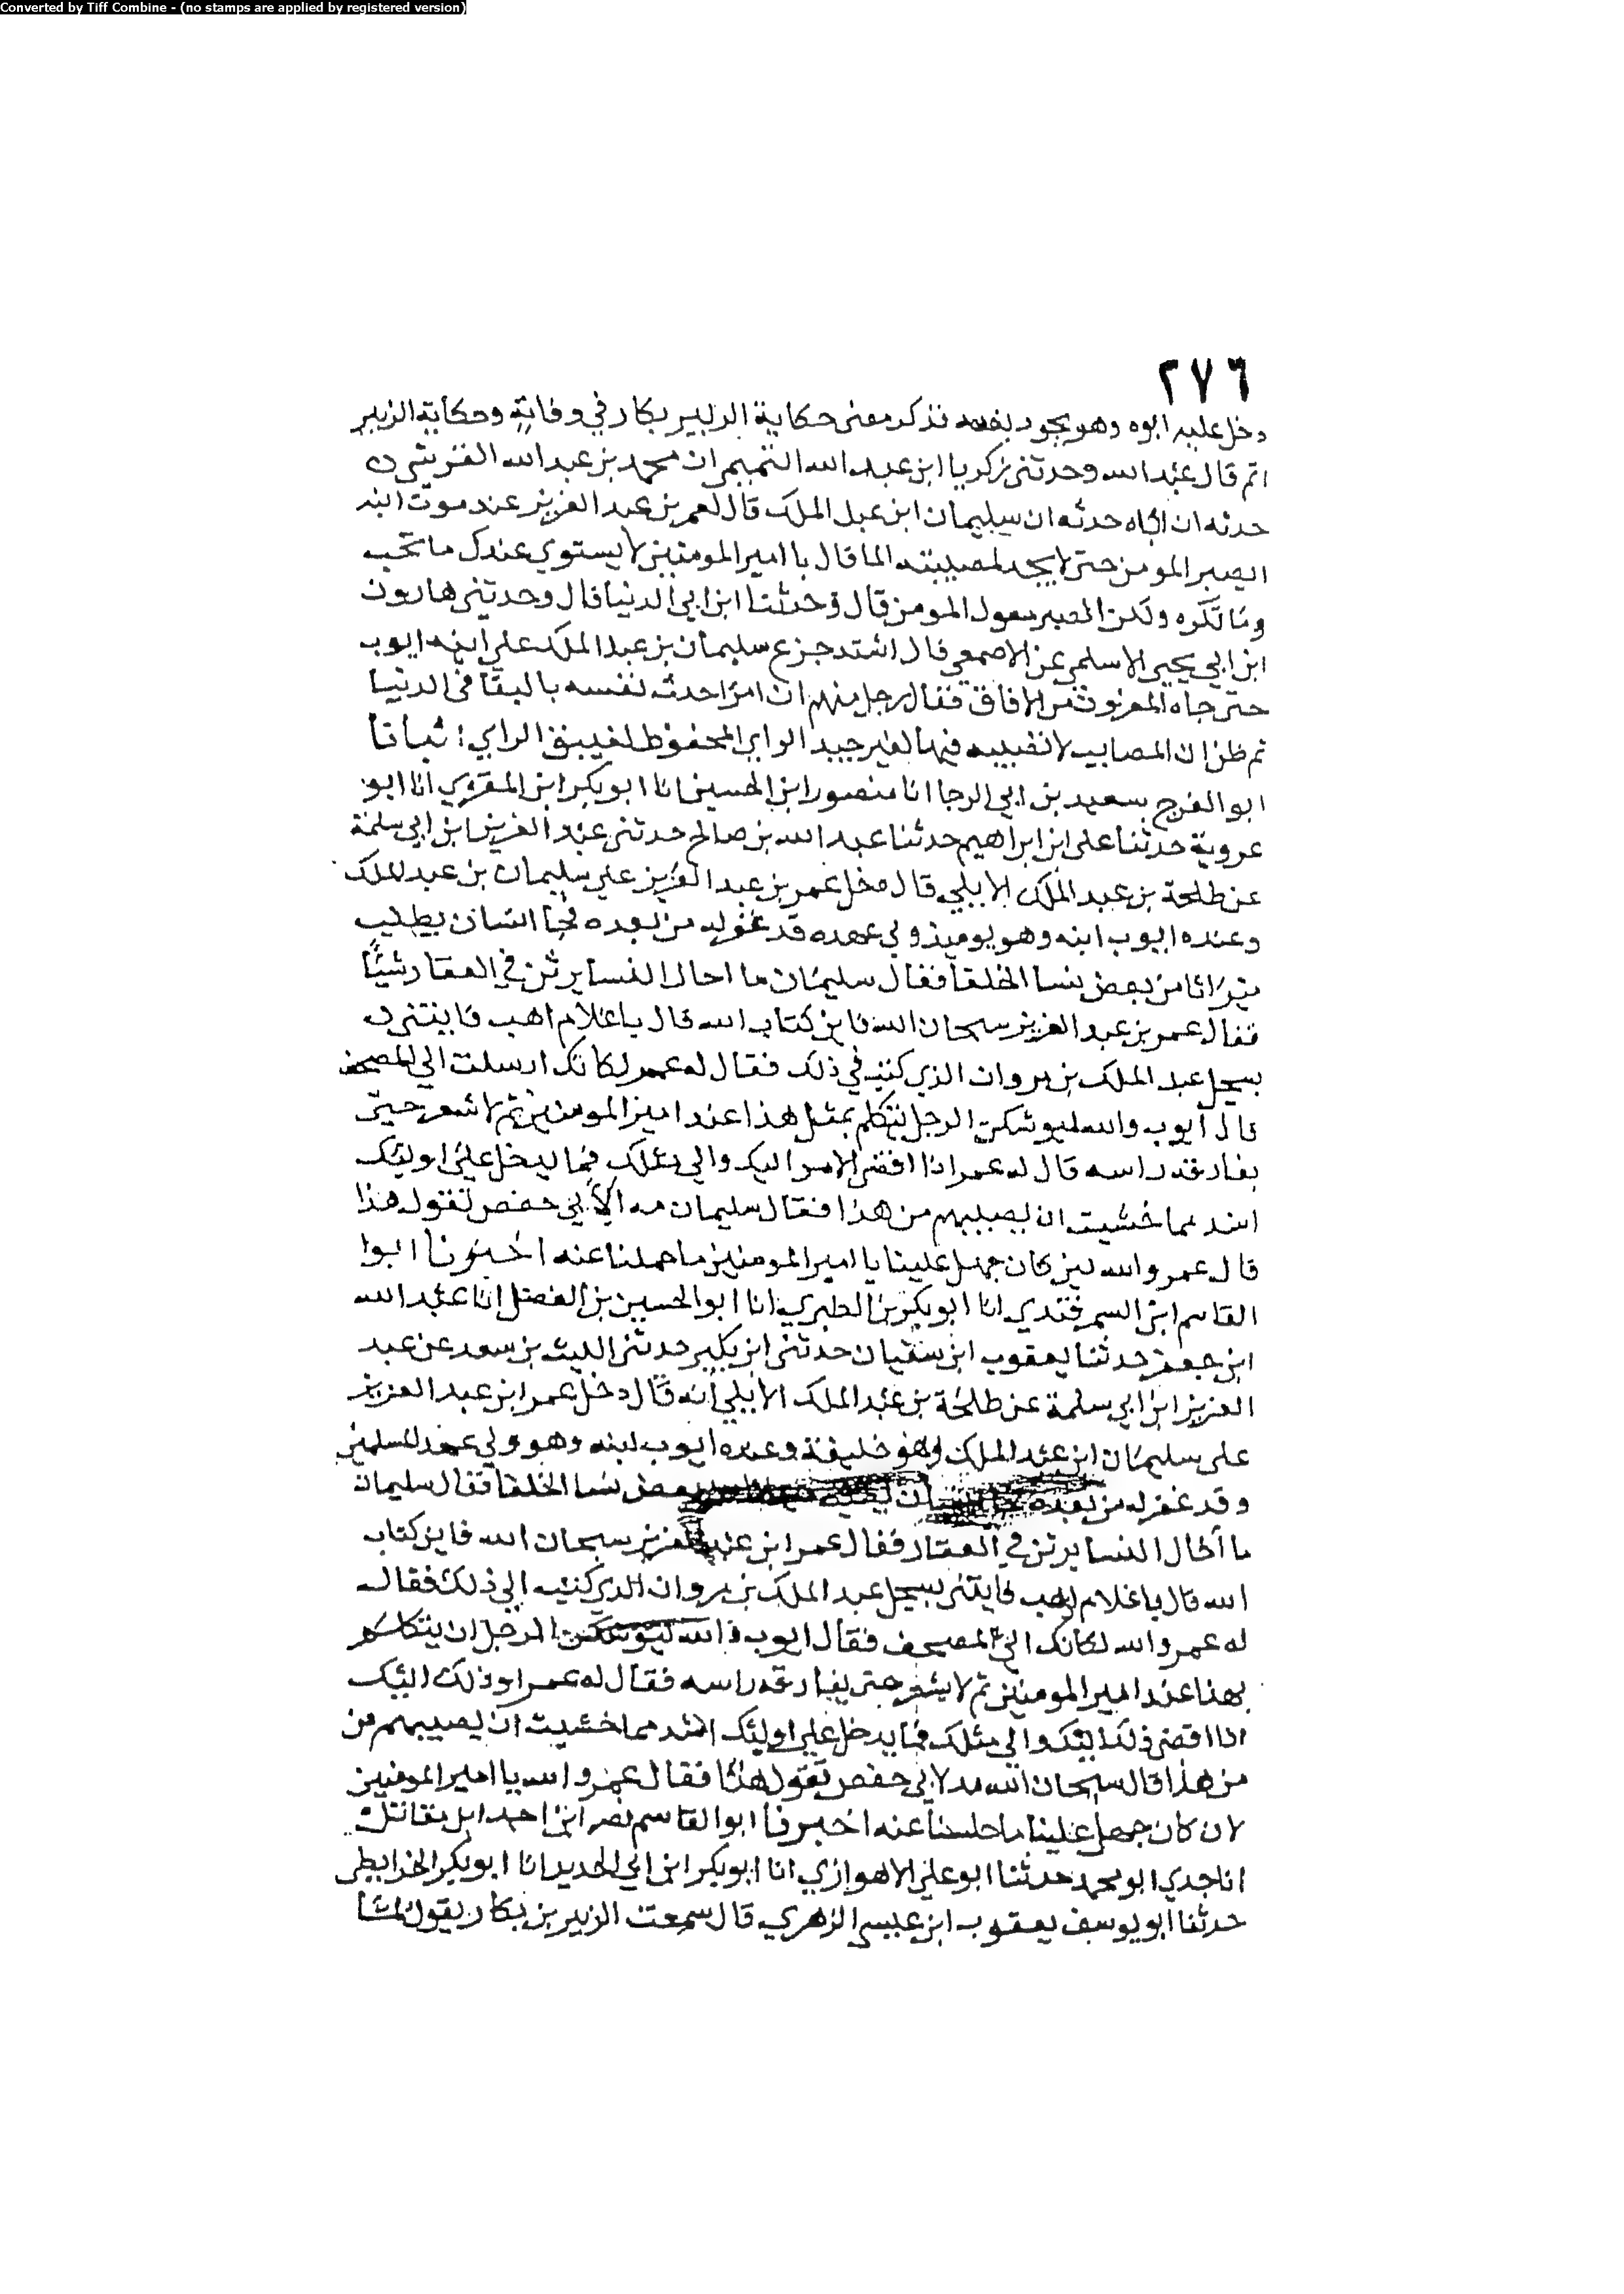 Converted by Tiff Combine - (no stamps are applied by registered version)
٢٧٦
دخل عليه ابوه وهو يجود بنفسه فذكر معنى حكاية الزبير بكار في وفاته وحكاية الزبير
اتم قال عبد الله وحدثني زكريا ابن عبد الله التميمي ان محمد بن عبد الله القرشي
حدثه ان اباه حدثه ان سليمان ابن عبد الملك قال لعمر بن عبد العزيز عند موت ابنه
ايصبر المومن حتى لا يجد لمصيبته الما قال يا امير المومنين لا يستوي عندك ما تحب
وما تكره ولكن الصبر معول المومن قال وحدثنا ابن ابي الدنيا قال وحدثني هارون
ابن ابي يحيى الاسلمي عن الاصمعي قال اشتد جزع سليمان بن عبد الملك على ابنه ايوب
حتى جاه المعزون من الافاق فقال رجل منهم ان امرا حدث نفسه بالبقا في الدنيا
ثم ظن ان المصايب لا تصيبه فيها لغير جيد الراي انبانا
ابو الفرج سعيد بن ابي الرجا انا منصور ابن الحسين انا ابو بكر ابن المقري انا ابو
عروبة حدثنا علي ابن ابراهيم حدثنا عبد الله بن صالح حدثني عبد العزيز ابن ابي سلمة
عن طلحة بن عبد الملك الايلي قال دخل عمر بن عبد العزيز على سليمان بن عبد الملك
وعنده ايوب ابنه وهو يوميذ ولي عهده قد عقد له من بعده فجا انسان يطلب
ميراثا من بعض نسا الخلفا فقال سليمان ما اخال النسا يرثن في العقار شيئا
فقال عمر بن عبد العزيز سبحان الله فاين كتاب الله قال يا غلام اهب فايتني
بسجل عبد الملك بن مروان الذي كتب في ذلك فقال له عمر لكانك ارسلت الي المصحف
قال ايوب والله ليوشكن الرجل يتكلم بمثل هذا عند امير المومنين ثم لا شعر حتى
يفارقه راسه قال له عمر اذا افضى الامر اليك والي مثلك فما يدخل على اوليك
اشد مما خشيت ان يصيبهم من هذا فقال سليمان مه الابي حفص تقول هذا
قال عمر والله لين كان جهل علينا يا امير المومنين ما حملنا عنه اخبرنا ابوا
القاسم ابن السمرقندي انا ابو بكر بن الطبري انا ابو الحسين بن الفضل انا عبد الله
ابن جعفر حدثنا يعقوب ابن سفيان حدثني ابن بكير حدثني الليث بن سعد عن عبد
العزيز ابن ابي سلمة عن طلحة بن عبد الملك الايلي انه قال دخل عمر ابن عبد العزيز
على سليمان ابن عبد الملك وهو خليفة وعنده ايوب ابنه وهو ولي عهد المسلمين
وقد عقد له من بعده بعض نسا الخلفا فقال سليمان
ما اخال النسا يرثن في العقار فقال عمر ابن عبد العزيز سبحان الله فاين كتاب
الله قال يا غلام اهب فايتني بسجل عبد الملك بن مروان الذي كتب الي ذلك فقال
له عمر والله لكانك الى المصحف فقال ايوب والله ليوشكن الرجل ان يتكلم
بهذا عند امير المومنين ثم لا يشعر حتى يفارقه راسه فقال له عمر او ذلك اليك
اذا افضى ذلك اليك والي مثلك فما يدخل على اوليك اشد مما خشيت ان يصيبهم من
من هذا قال سبحان الله مه لابي حفص تقول هذا فقال عمر والله يا امير المومنين
لان كان جهل علينا ما حلمنا عنه اخبرنا ابوا القاسم نصر ابن احمد ابن مقاتل
انا جدي ابو محمد حدثنا ابو علي الاهوازي انا ابو بكر ابن ابي الحديد انا ابو بكر الخرايطي
حدثنا ابو يوسف يعقوب ابن عيسى الزهري قال سمعت الزبير بن بكار يقول لما